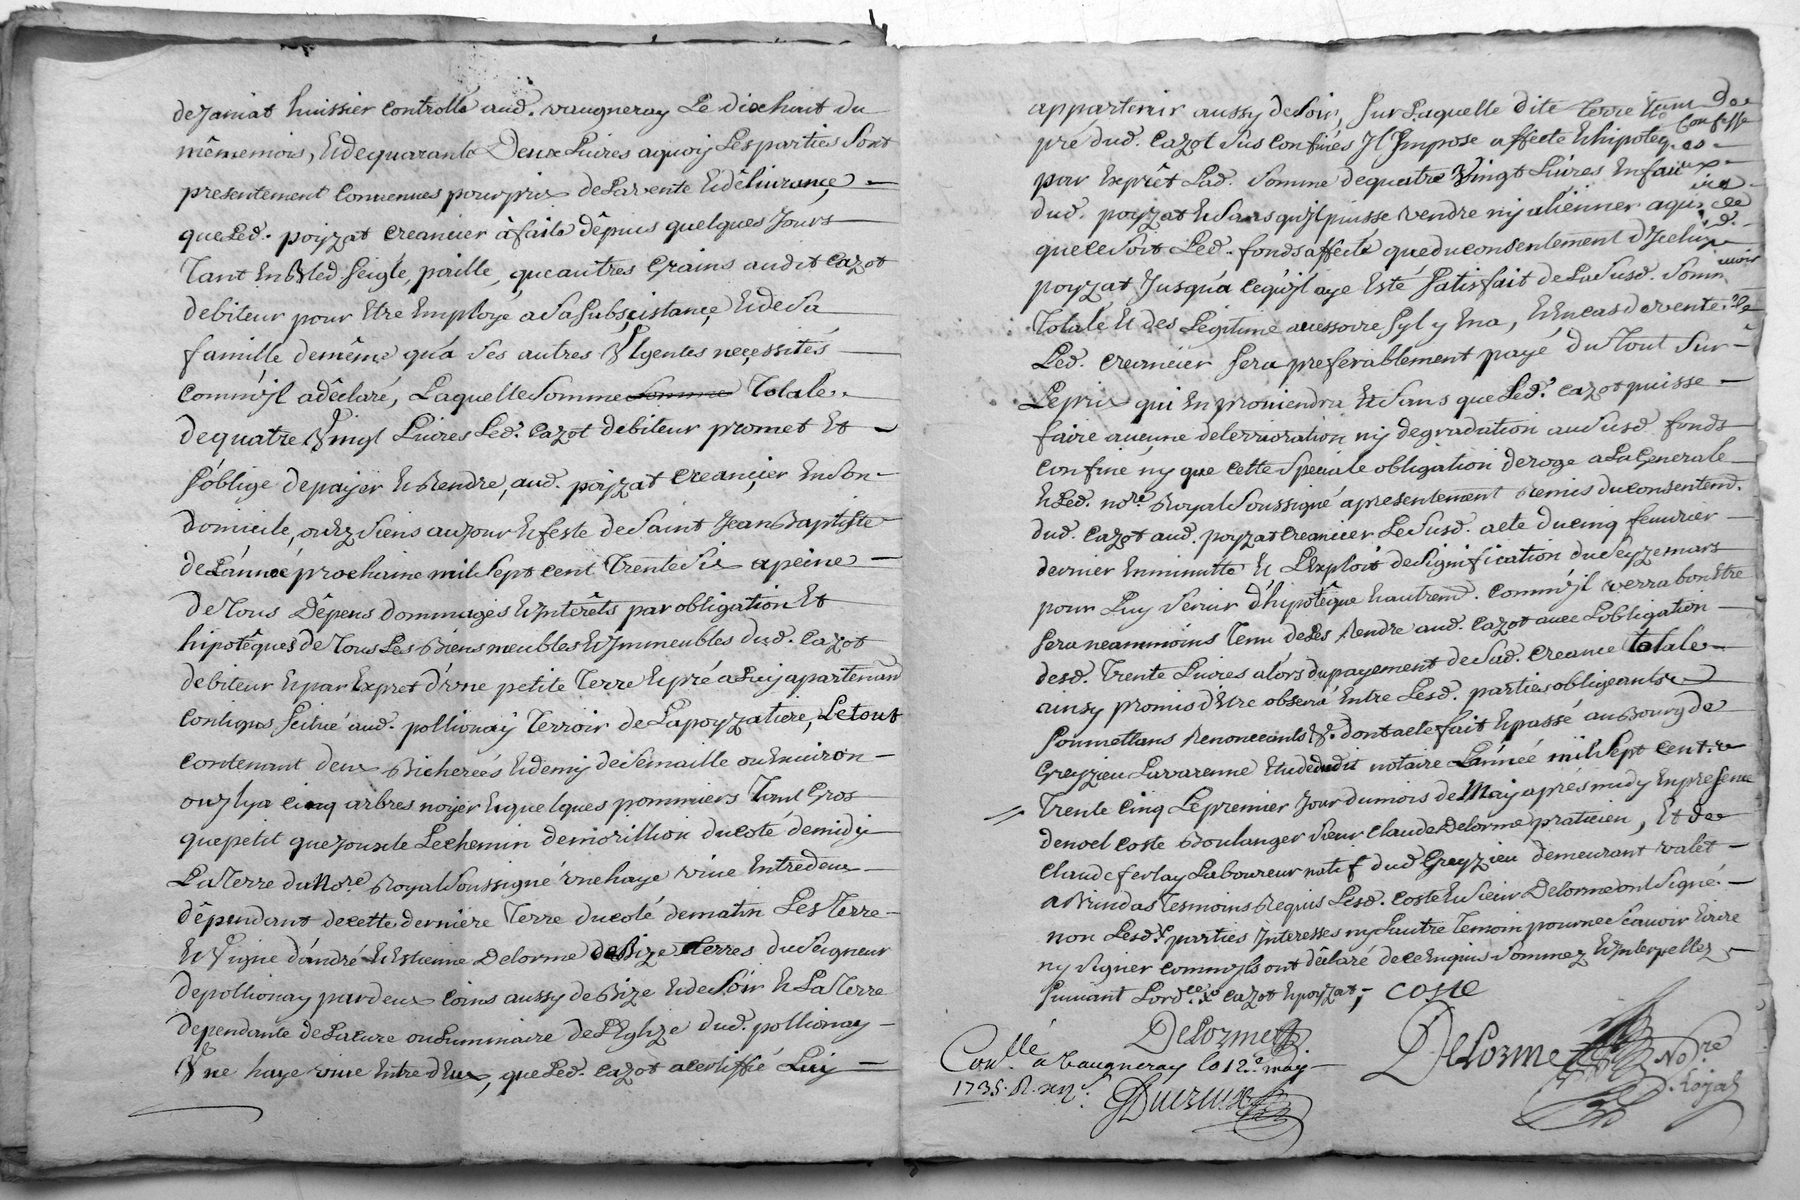 de Jamiat huissier controllé aud. vaugneray Le dixhuit du
mêmemois, Et dequarante Deux Livres aquoy Les parties Sont
presentement Convenues pour prix de La vente Et dêlivrance
que Led. poyzat creancier à faite dêpuis quelques Jours
Tant En Bled Seigle, paille, que autres Grains audit Cazot
debiteur pour Etre Employé a Sa Subscistance Et de Sa
famille demême qu'a Ses autres Urgentes necessités
Comm'jl a dêclaré, Laquelle Somme Somme Totale
dequatre Vingt Livres Led. Cazot debiteur promet Et
s'oblige depayer Et Rendre, aud. poyzat Creancier En Son
domicile, ou Ez Siens au Jour Et feste de Saint Jean Baptiste
de L'année prochaine mil Sept cent Trente Six apeine
de Tous Dêpens dommages Et Interêts par obligation Et
hipotêques de Tous Les Biens meubles Et Immeubles dud. Cazot
debiteur Et par Expret d'vne petite Terre Et pré a Luy apartenand
Contigus Scitué aud. pollionay Terroir de Lapoyzatiere, Le tout
contenant deux Bicherées Et demy de Semaille ou Environ
ou jl y a cinq arbres noyer Et quelques pommiers Tant Gros
que petit que jouxte Le chemin demorillion du coté demidy
La Terre du Nore. Royal Soussigné vne haye vive Entredeux
dêpendant decette derniere Terre du coté dematin Les Terre
Et Vigne d'andré Et Estienne Delorme de Bize Terres du Seigneur
depollionay par deux coins aussy de Bize Et de Soir Et La Terre
dependante de La Cure ou Luminaire de L'Eglize dud. pollionay
Vne haye vive Entre d'Eux, que Led. Cazot a certiffié Luy
appartenir aussy de Soir, Sur Laquelle dite Terre Et
pré dud. Cazot Sus confinés Jl Impose affecte Et hipoteq.
pour Exprêt Lad. Somme dequatre Vingt Livres En faveur
dud. poyzat Et Sans qu'jl puisse vendre ny aliënner aqui
que ce Soit Led. fonds affecté que du consentement d'Jceluy
poyzat Jusqu'a ce qu'jl aye Esté Satisfait de La Susd. Somme
Totale Et des Legitime accessoire Syl y En a, Et En cas de vente
Led. creancier Sera preferablement payé du Tout Sur
Le prix qui En proviendra Et Sans que Led. Cazot puisse
faire aucune deterrioration ny degradation au Susd. fonds
Confiné ny que cette Speciale obligation deroge a La Generale
Et Led. nore. Royal Soussigné a presentement Remis du consentemt.
dud. Cazot aud. poyzat creancier Le Susd. acte du cinq fevvrier
dernier En minutte Et L'Exploit de Signification du Seyze mars
pour Luy Servir d'hipotêque Et autremt. Comm'jl verra bon Etre
Sera neammoins Tenu de Les Rendre aud. Cazot avec L'obligation
desd. Trente Livres alors du payement de Sad. Creance totale
ainsy promis d'Etre observé Entre Lesd. parties obligeants
Soumettans Renonceants &. dont acte fait Et passé au Bourg de
Greyzieu Lavarenne Etude dudit notaire L'année mil Sept cent
Trente cinq Le premier Jour du mois de May aprés midy En presence
de noel Coste Boulanger Sieur Claude Delorme praticien, Et de
Claude ferlay Laboureur natif dud. Greyzieu demeurant valet
a Brindas Tesmoins Requis Lesd. Coste Et Sieur Delorme ont Signé
non Lesd. parties Interesses ny L'autre Temoin pour ne Scavoir Ecrire
ny Signer comm'jls ont dêclaré de ce Enquis Sommez Et Interpellez
Suivant Lordce. Cazot Et poyzat, COSTE
DeLorme
DeLorme Nore. Royal
Conllé a Vaugneray le 12e. may
1735. R.